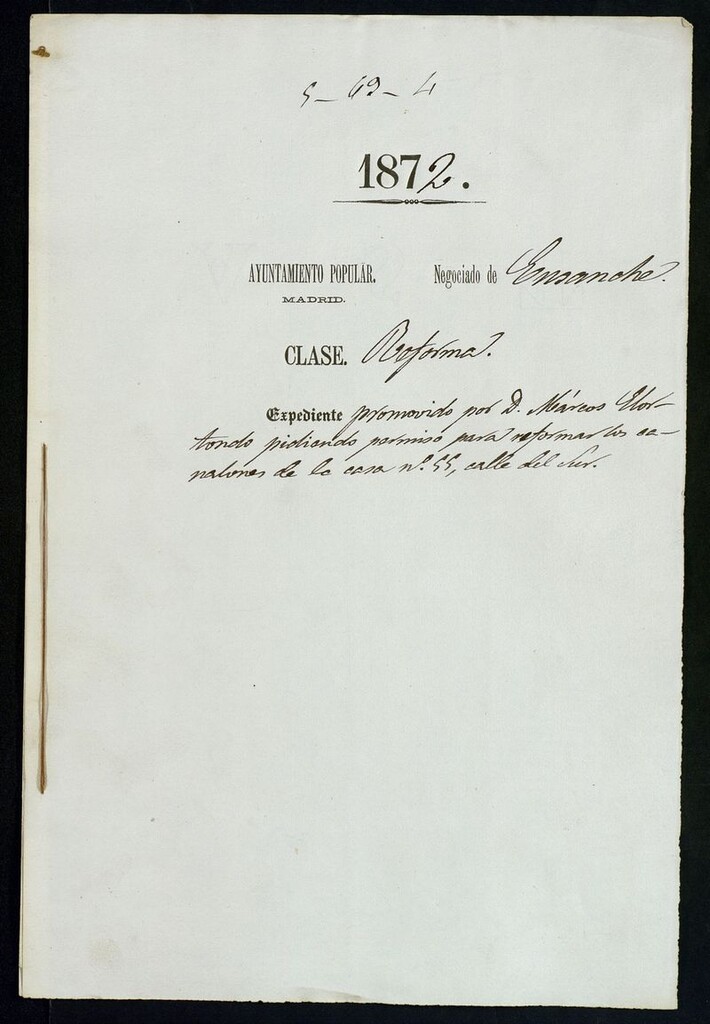 5-69-4
1872.
AYUNTAMIENTO POPULAR. Negociado de Ensanche.
MADRID.
CLASE. Reforma.
Expediente promovido por D. Márcos Elor-
tondo pidiendo permiso para reformar los ca-
nalones de la casa nº 55, calle del Sur.